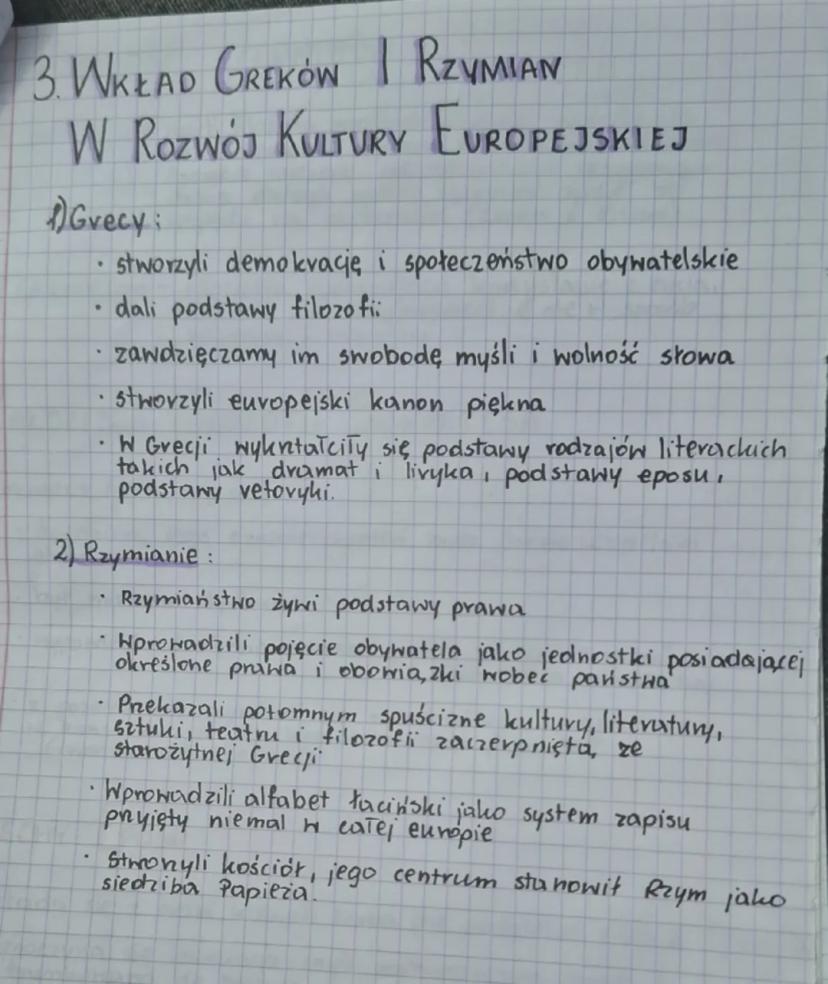 3. WKŁAD GREKÓW I RZYMIAN
W ROZWÓJ KULTURY EUROPEJSKIEJ
1) Grecy:
· stworzyli demokrację i społeczeństwo obywatelskie
· dali podstawy filozofii
· zawdzięczamy im swobodę myśli i wolność słowa
· stworzyli europejski kanon piękna
· W Grecji wykształciły się podstawy rodzajów literackich
takich jak dramat i liryka, podstawy eposu,
podstawy retoryki.
2) Rzymianie:
· Rzymiaństwo żywi podstawy prawa
· Wprowadzili pojęcie obywatela jako jednostki posiadającej
określone prawa i obowiązki wobec państwa
· Przekazali potomnym spuścizne kultury, literatury,
sztuki, teatru i filozofii zaczerpniętą ze
starożytnej Grecji
· Wprowadzili alfabet łaciński jako system zapisu
przyjęty niemal w całej europie
· Stworzyli kościół, jego centrum stanowił Rzym jako
siedziba Papieża.